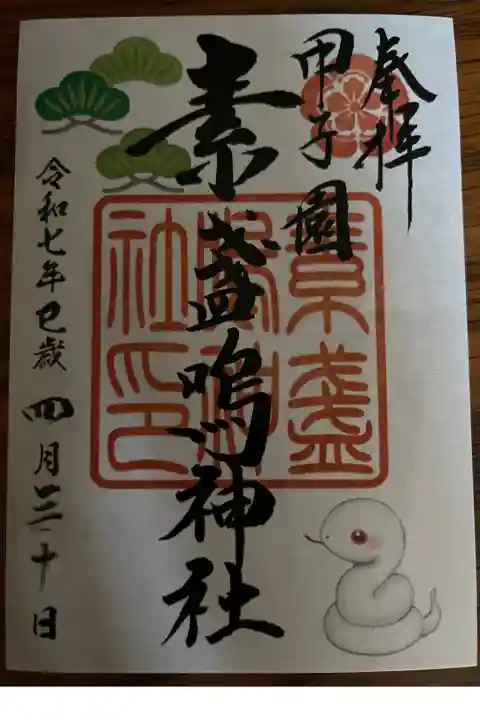 奉拝
甲子園
素盞嗚神社
素盞
嗚神
社印
令和七年巳歳 四月三十日